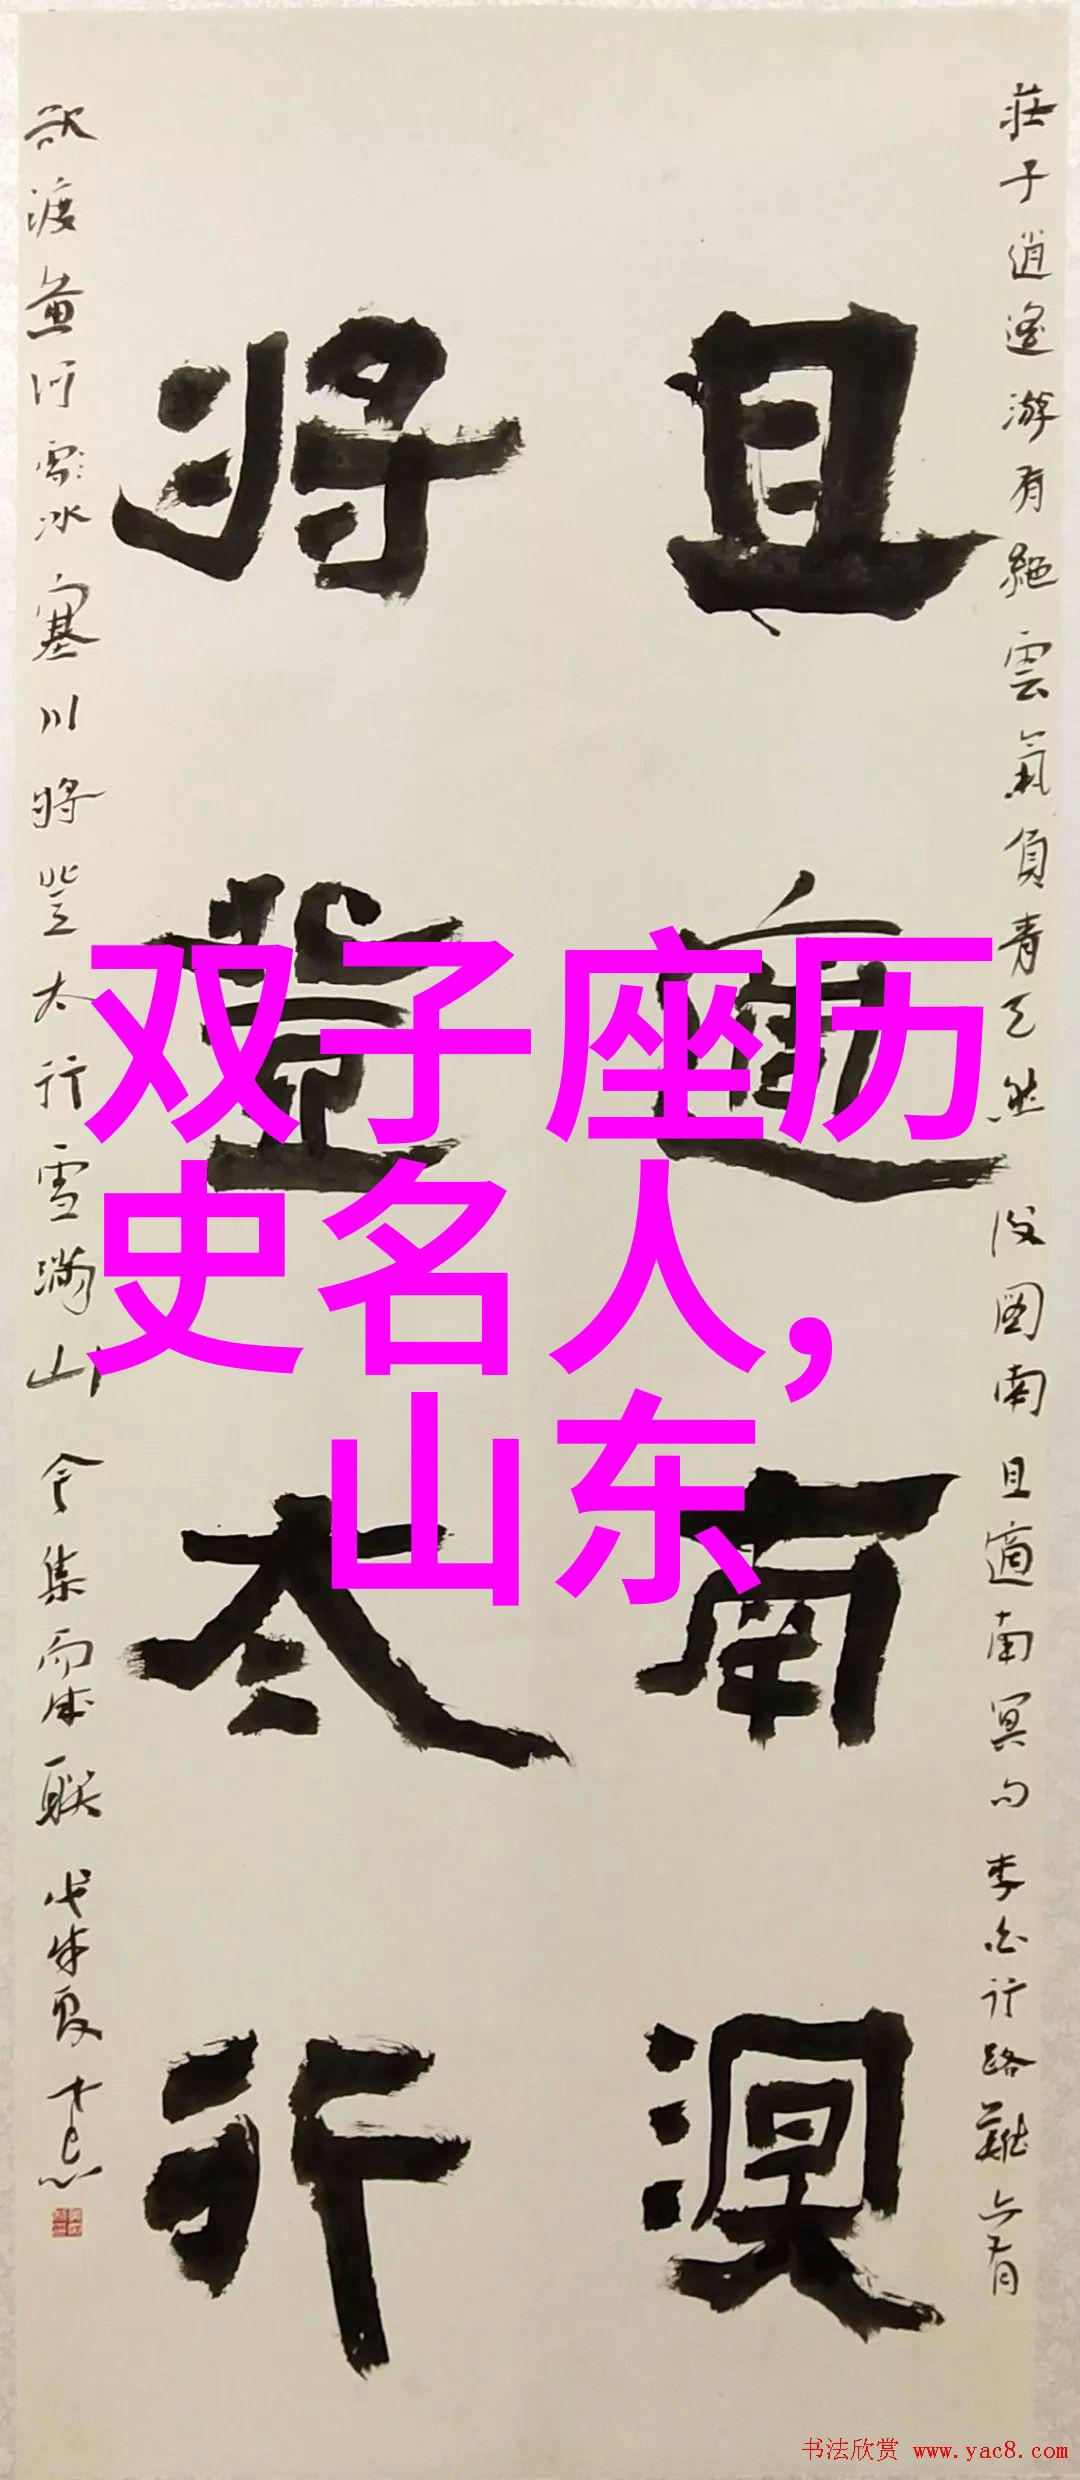 莊子逍遙游有絕雲氣負青天然後圖南且適南冥句李白行路難亦有
且適南溟
將登太行
欲渡黃河冰塞川將登太行雪滿山今集而成联戊戌夏
双子座历
史名人，
山东
书法欣赏 www.yac8.com